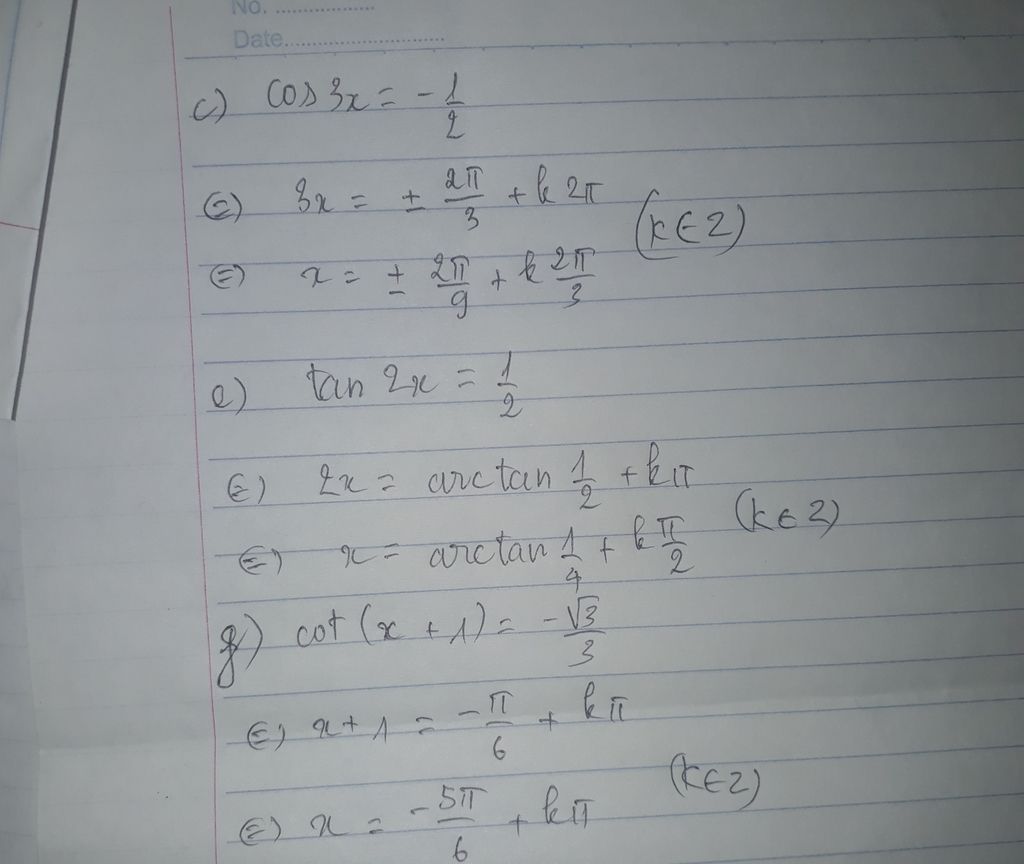 No. ..................
Date.............................
c) cos 3x = - 1/2
⇔ 3x = ± 2π/3 + k2π
(k ∈ Z)
⇔ x = ± 2π/9 + k 2π/3
e) tan 2x = 1/2
⇔ 2x = arctan 1/2 + kπ
⇔ x = arctan 1/4 + k π/2 (k ∈ Z)
g) cot (x + 1) = -√3/3
⇔ x + 1 = -π/6 + kπ
(k ∈ Z)
⇔ x = -5π/6 + kπ